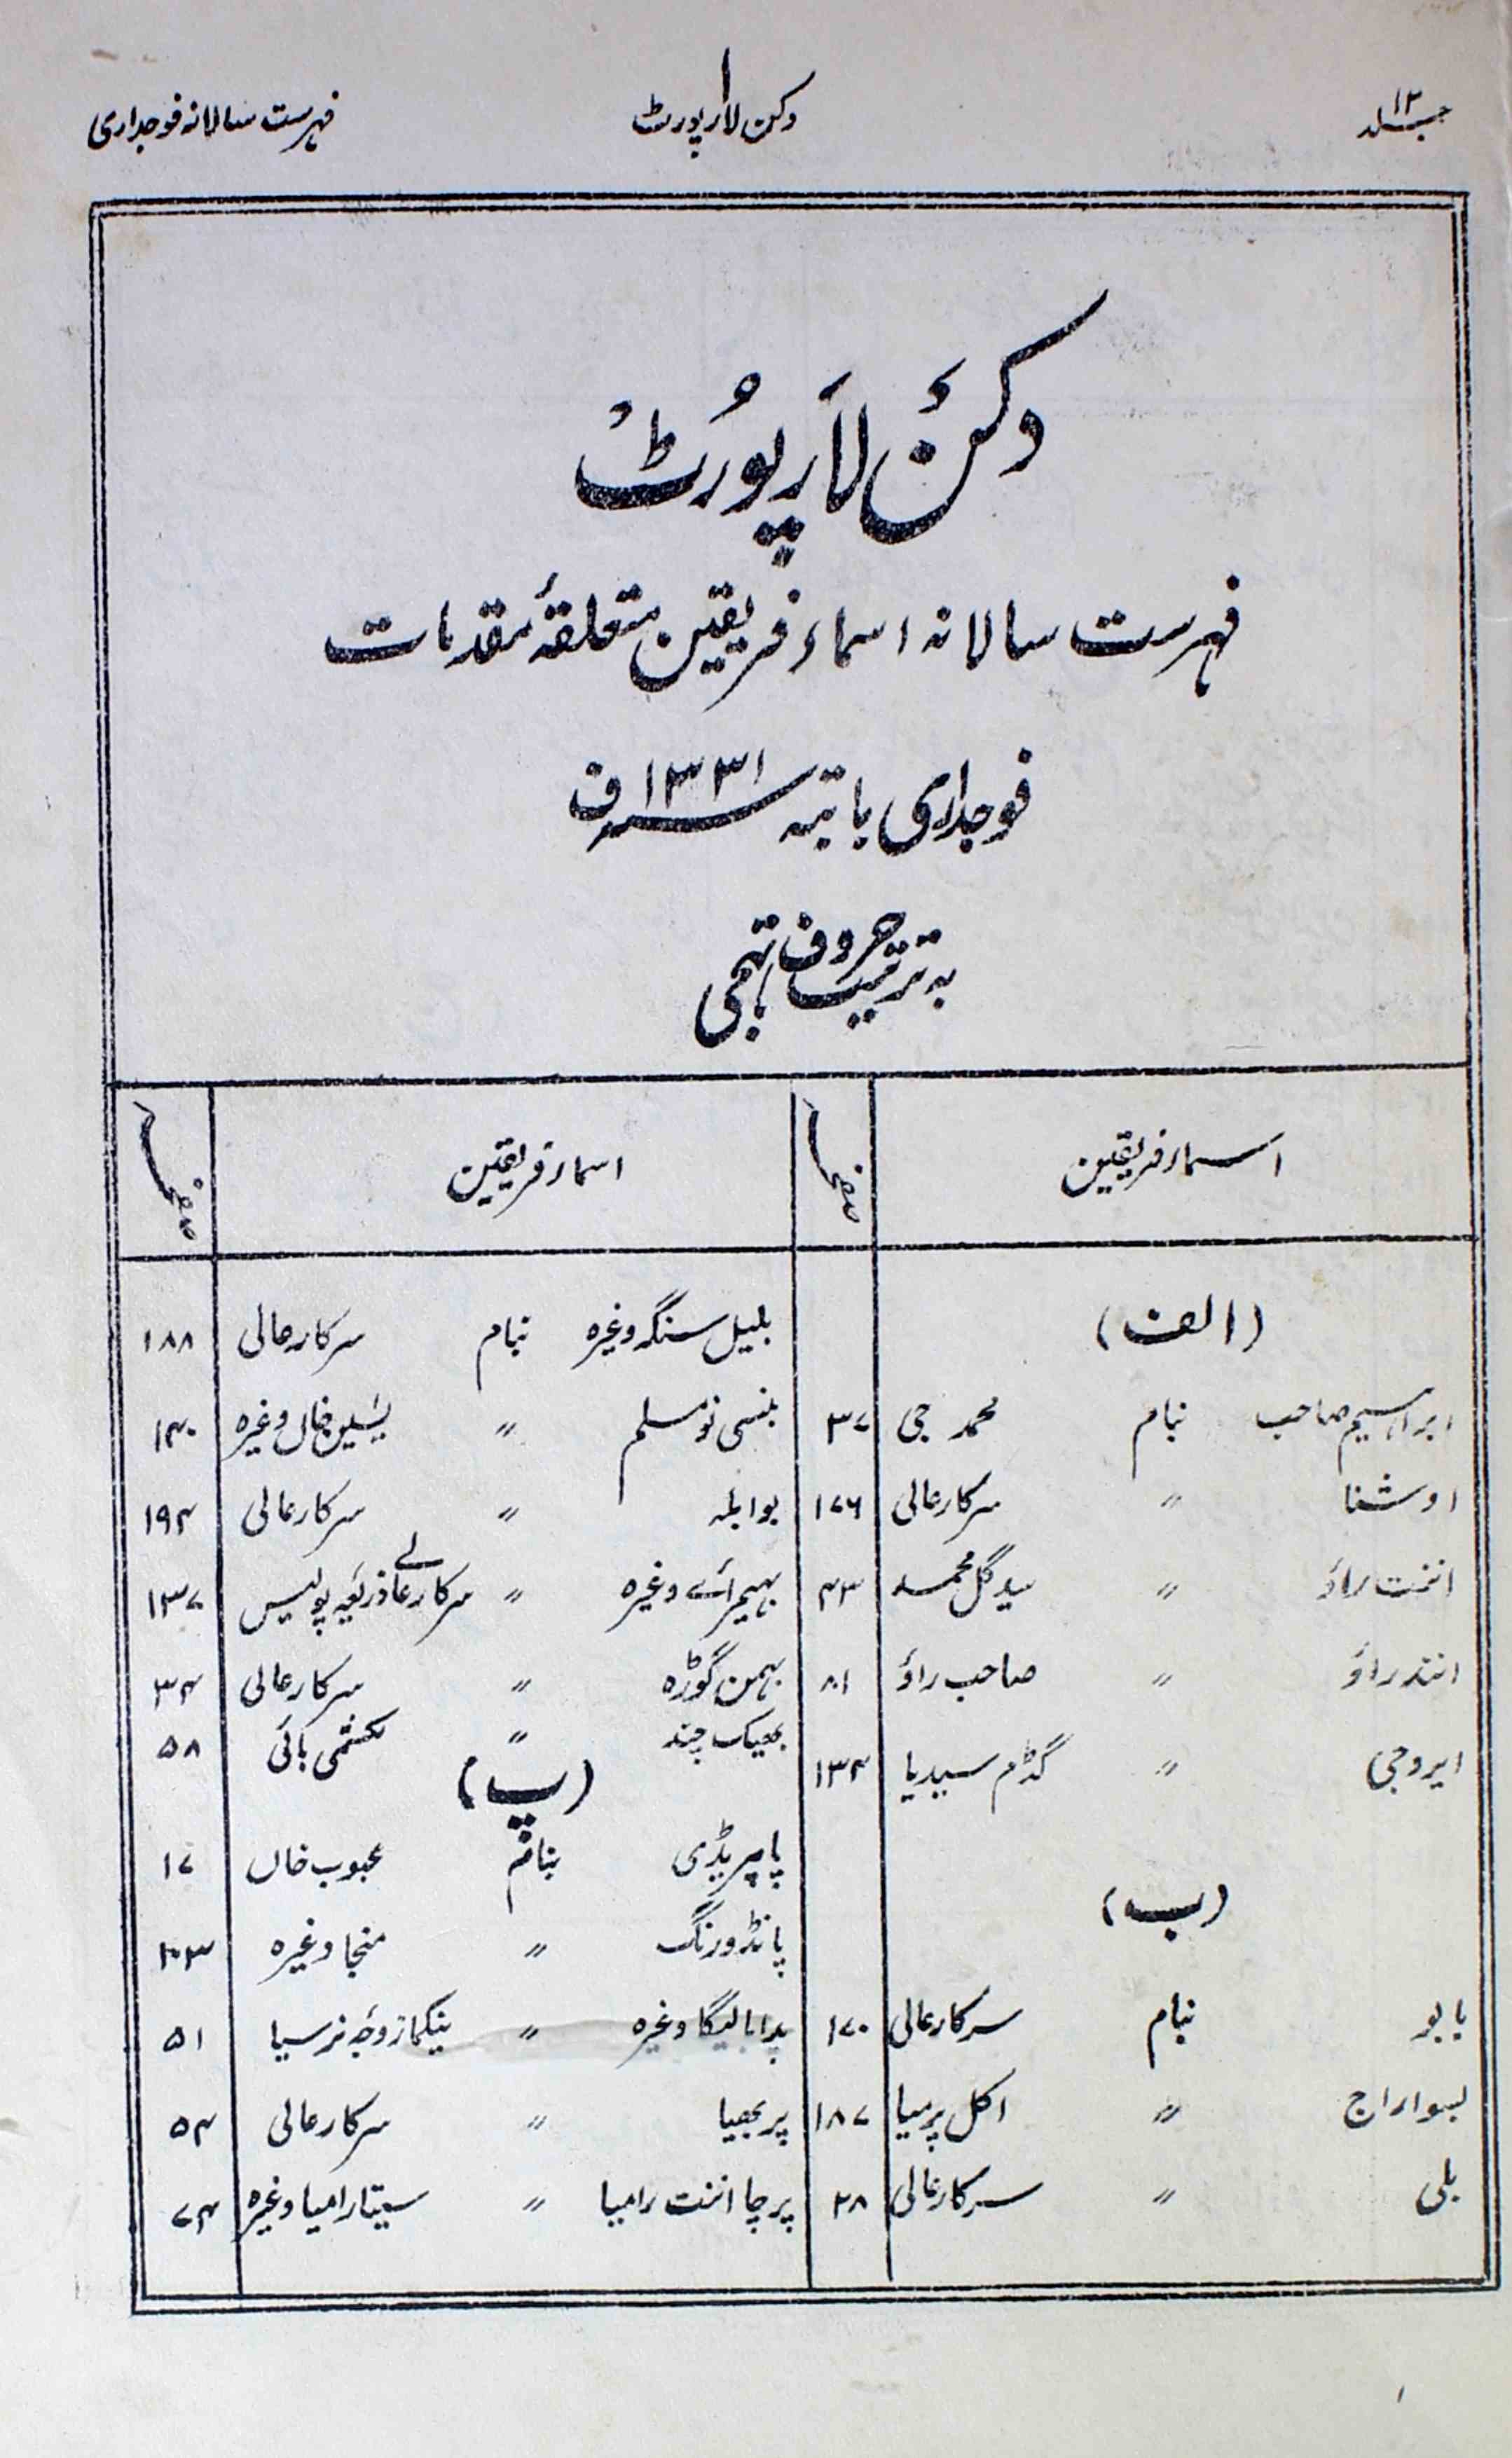 جلد ۱۲
۱
دکن لا رپورٹ
فہرست سالانہ فوجداری
دکن لا رپورٹ
فہرست سالانہ اسماء فریقین متعلقۂ مقدمات
فوجداری بابتہ سنہ ۱۳۳۱ ف
بہ ترتیب حروف تہجی
اسماء فریقین صفحہ
(الف)
ابراہیم صاحب بنام محمد جی ۳۷
اوشنا " سرکار عالی ۱۷۶
اننت راؤ " سید گل محمد ۴۳
انندر راؤ " صاحب راؤ ۸۱
ایروجی " گڈم سیدیا ۱۳۴
(ب)
بابو بنام سرکار عالی ۱۷۰
بسواراج " اکل پرمیا ۱۸۷
بلی " سرکار عالی ۲۸
اسماء فریقین صفحہ
بلبیل سنگہ وغیرہ بنام سرکار عالی ۱۸۸
بنسی نو مسلم " یٰسین خاں وغیرہ ۱۴۰
بوابلہ " سرکار عالی ۱۹۴
بہیمرائے وغیرہ " سرکار عالی ذریعہ پولیس ۱۳۷
بہمن گوڑہ " سرکار عالی ۳۴
بھیک چند " لکشمی بائی ۵۸
(پ)
پاپریڈی بنام محبوب خاں ۱۷
پانڈورنگ " منجا وغیرہ ۱۰۳
پدا بالیگا وغیرہ " ینکما زوجہ نرسیا ۵۱
پربھیا " سرکار عالی ۵۴
پرچا اننت رامیا " سیتا رامیا وغیرہ ۷۴